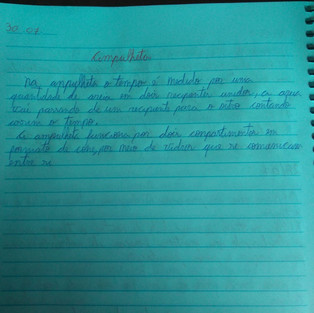 30.07
Ampulheta
Na ampulheta o tempo é medido por uma
quantidade de areia em dois recipientes unidos, a qual
vai passando de um recipiente para o outro contando
assim o tempo.
A ampulheta funciona por dois compartimentos em
formato de cone, por meio de vidros que se comunicam
entre si